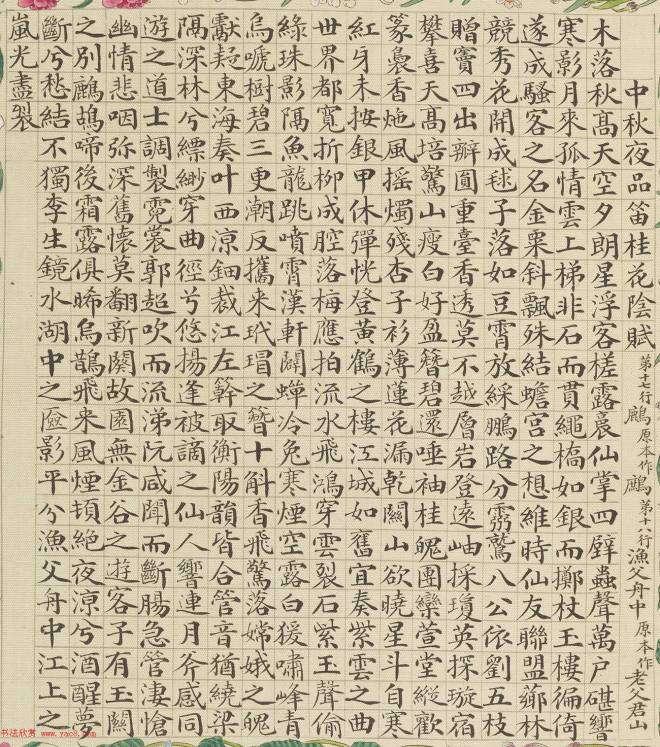 中秋夜品笛桂花陰賦
第十七行鷓原本作鷓第十八行漁父舟中原本作老父君山
木落秋高天空夕朗星浮客槎露裛仙掌四壁蟲聲萬户碪響
寒影月來孤情雲上梯非石而貫繩橋如銀而擲杖玉樓徧倚
遂成騷客之名金粟斜飄殊結蟾宮之想維時仙友聯盟鄉林
競秀花開成毬子落如豆霄放綵鵬路分鷲八公依劉五枝
贈竇四出辦圓重臺香透莫不越層岩登遠岫採瓊英探琁宿
攀喜天高培驚山瘦白好盈簪碧還唾袖桂魄團欒萱堂縱歡
篆裊香炧風摇燭殘杏子衫薄蓮花漏乾闗山欲曉星斗自寒
紅牙未按銀甲休彈恍登黃鶴之樓江城如舊宜奏紫雲之曲
世界都寬折柳成腔落梅應拍流水飛鴻穿雲裂石紫玉聲偷
緑珠影隔魚龍跳噴霄漢軒闢蟬冷兔寒煙空露白猿嘯峰青
烏唬樹碧三更潮反攜来玳瑁之簪十斛香飛驚落嫦娥之魄
獻疑東海奏叶西涼鈿裁江左簳取衡陽韻皆合管音猶繞梁
隔深林兮縹緲穿曲徑兮悠揚逢被謫之仙人響連月斧感同
遊之道士調製霓裳郭超吹而流涕阮咸聞而斷腸急管淒愴
幽情悲咽弥深舊懷莫翻新闋故園無金谷之遊客子有玉關
之别鷓鴣啼後霜露俱晞烏鵲飛来風煙頓絶夜涼兮酒醒夢
斷兮愁結不獨李生鏡水湖中之影平兮漁父舟中江上之
嵐光盡裂
书法欣赏 www.yac8.com